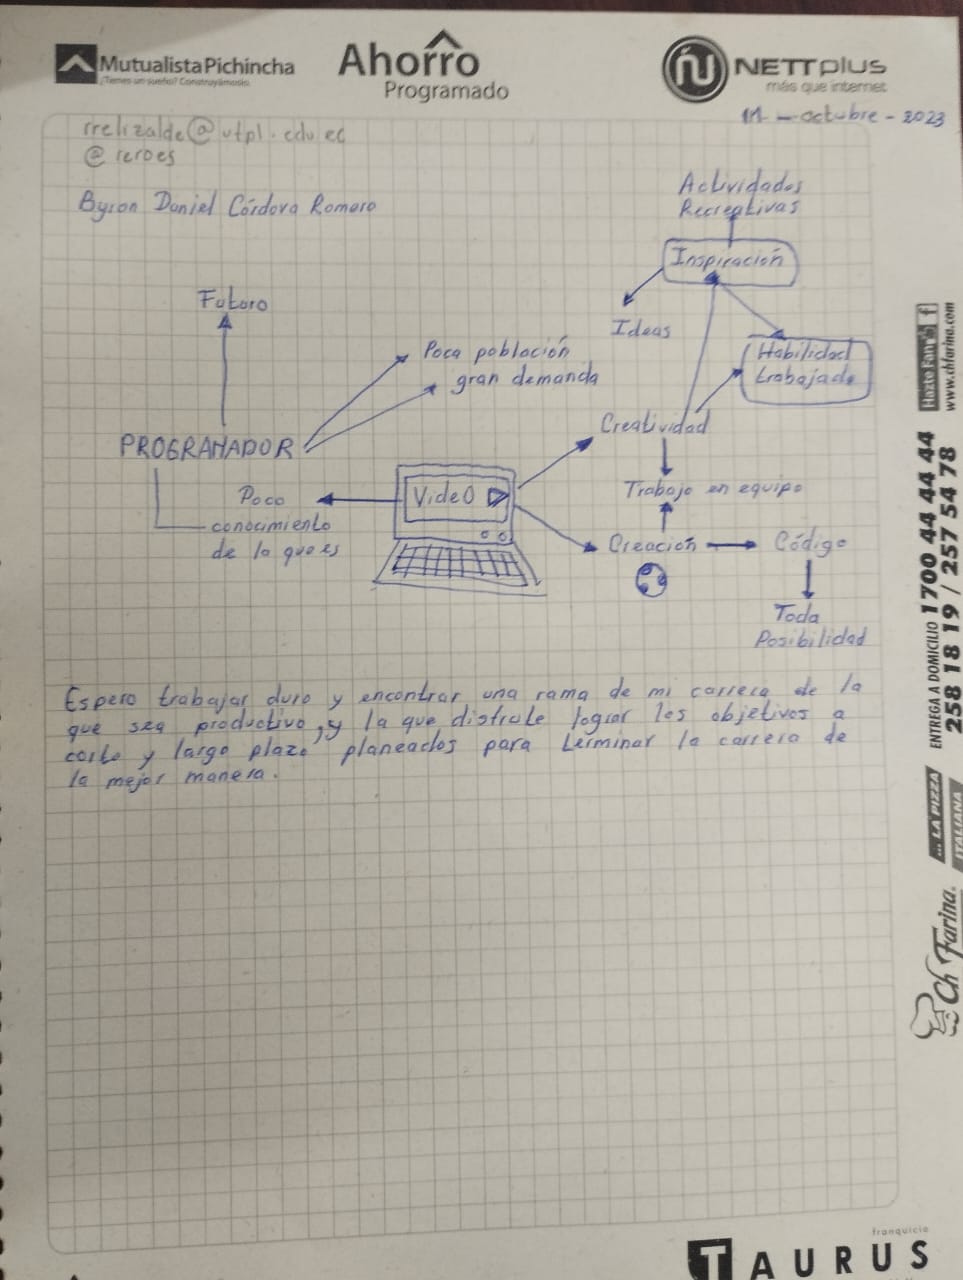 MutualistaPichincha
¿Tienes un sueño? Construyámoslo
Ahorro
Programado
NETTplus
más que internet
11 - octubre - 2023
rrelizalde@utpl.edu.ec
@reroes
Byron Daniel Córdova Romero
Actividades
Recreativas
Inspiración
Ideas
Habilidad
trabajada
Futuro
Poca población
gran demanda
PROGRAMADOR
Creatividad
Trabajo en equipo
Video
Poco
conocimiento
de lo que es
Creación
Código
Toda
Posibilidad
Espero trabajar duro y encontrar una rama de mi carrera de la
que sea productivo, y la que disfrute lograr los objetivos a
corto y largo plazo planeados para terminar la carrera de
la mejor manera.
Hazte Fan f
www.chfarina.com
ENTREGA A DOMICILIO 1700 44 44 44
258 18 19 / 257 54 78
... LA PIZZA
ITALIANA
Ch Farina.
franquicia
TAURUS